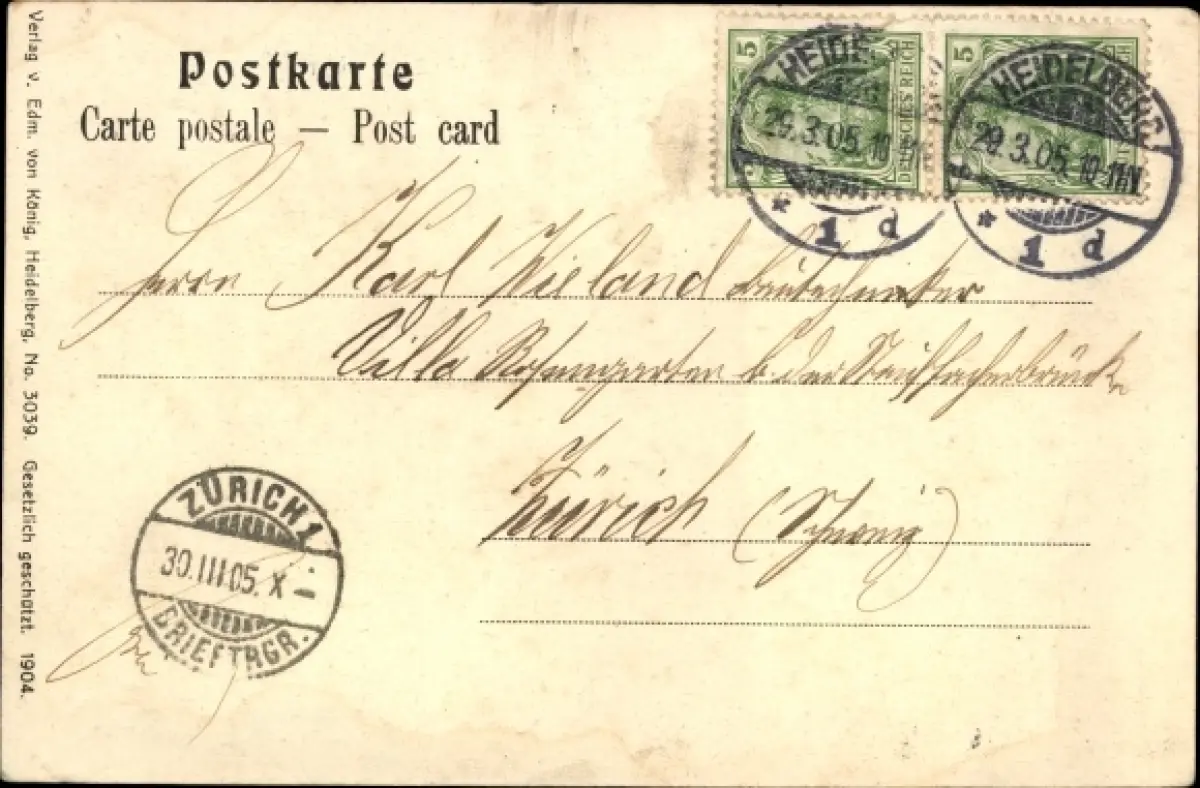 Verlag v. Edm. von König, Heidelberg, No. 3039. Gesetzlich geschützt. 1904.
Postkarte
Carte postale — Post card
5 DEUTSCHES REICH
5
HEIDELBERG
29.3.05.10-11V
* 1 d
HEIDELBERG.
29.3.05.10-11V
* 1 d
Herrn Karl Wieland
Villa Rosengarten b. der Stauffacherbrücke
Zürich (Schweiz)
ZÜRICH 1
30.III.05. X –
BRIEFTRGR.